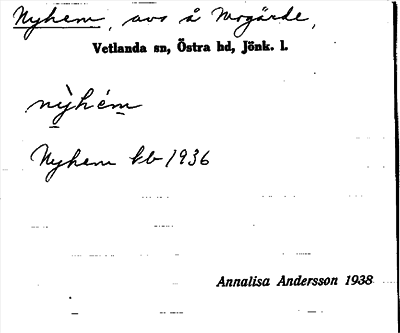 Nyhem, avs å Mogärde,
Vetlanda sn, Östra hd, Jönk. l.
nỳhém
Nyhem kb 1936
Annalisa Andersson 1938